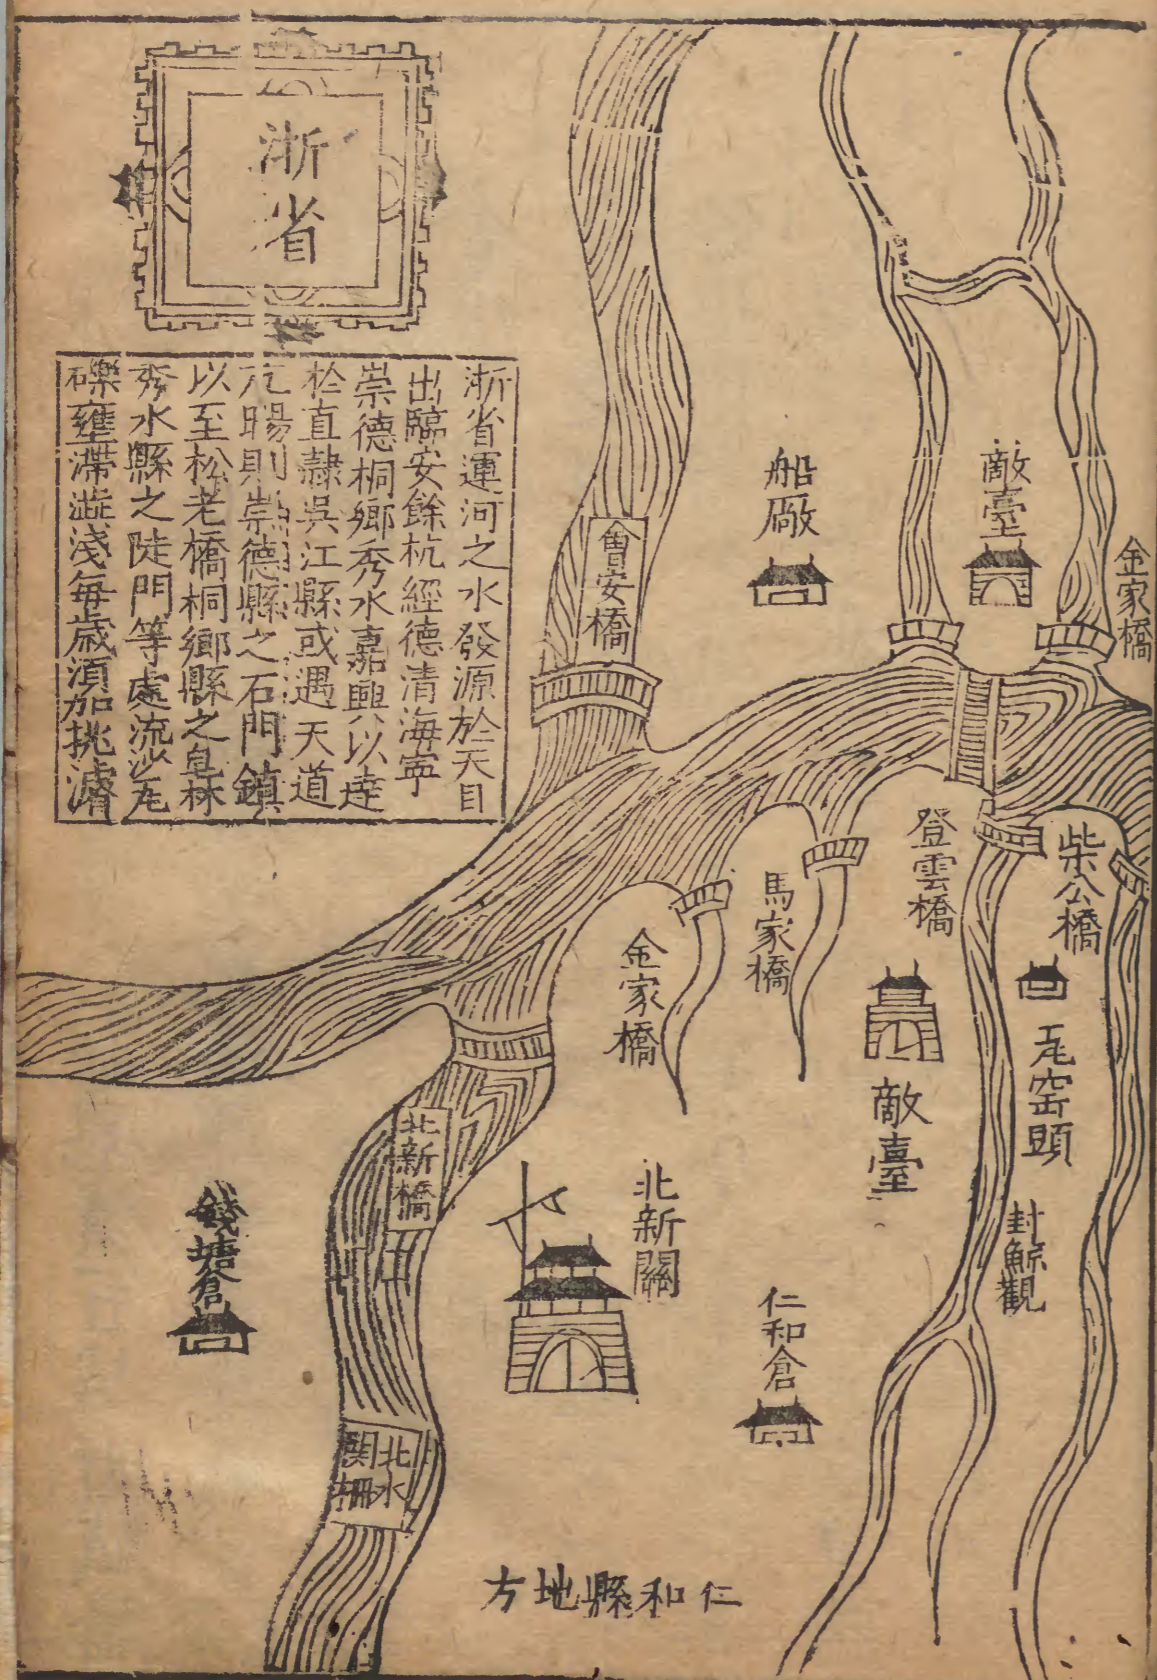 浙省
浙省運河之水發源於天目
出臨安餘杭經德清海寧
崇德桐鄉秀水嘉興以達
於直隸吳江縣或遇天道
亢暘則崇德縣之石門鎮
以至松老橋桐鄉縣之皂林
秀水縣之陡門等處流沙瓦
礫壅滯淤淺每歲須加挑濬
金家橋
敵臺
船厰
會安橋
柴公橋
登雲橋
馬家橋
金家橋
瓦窑頭
敵臺
北新橋
封鯨觀
北新關
錢塘倉
仁和倉
北水
関柵
仁和縣地方